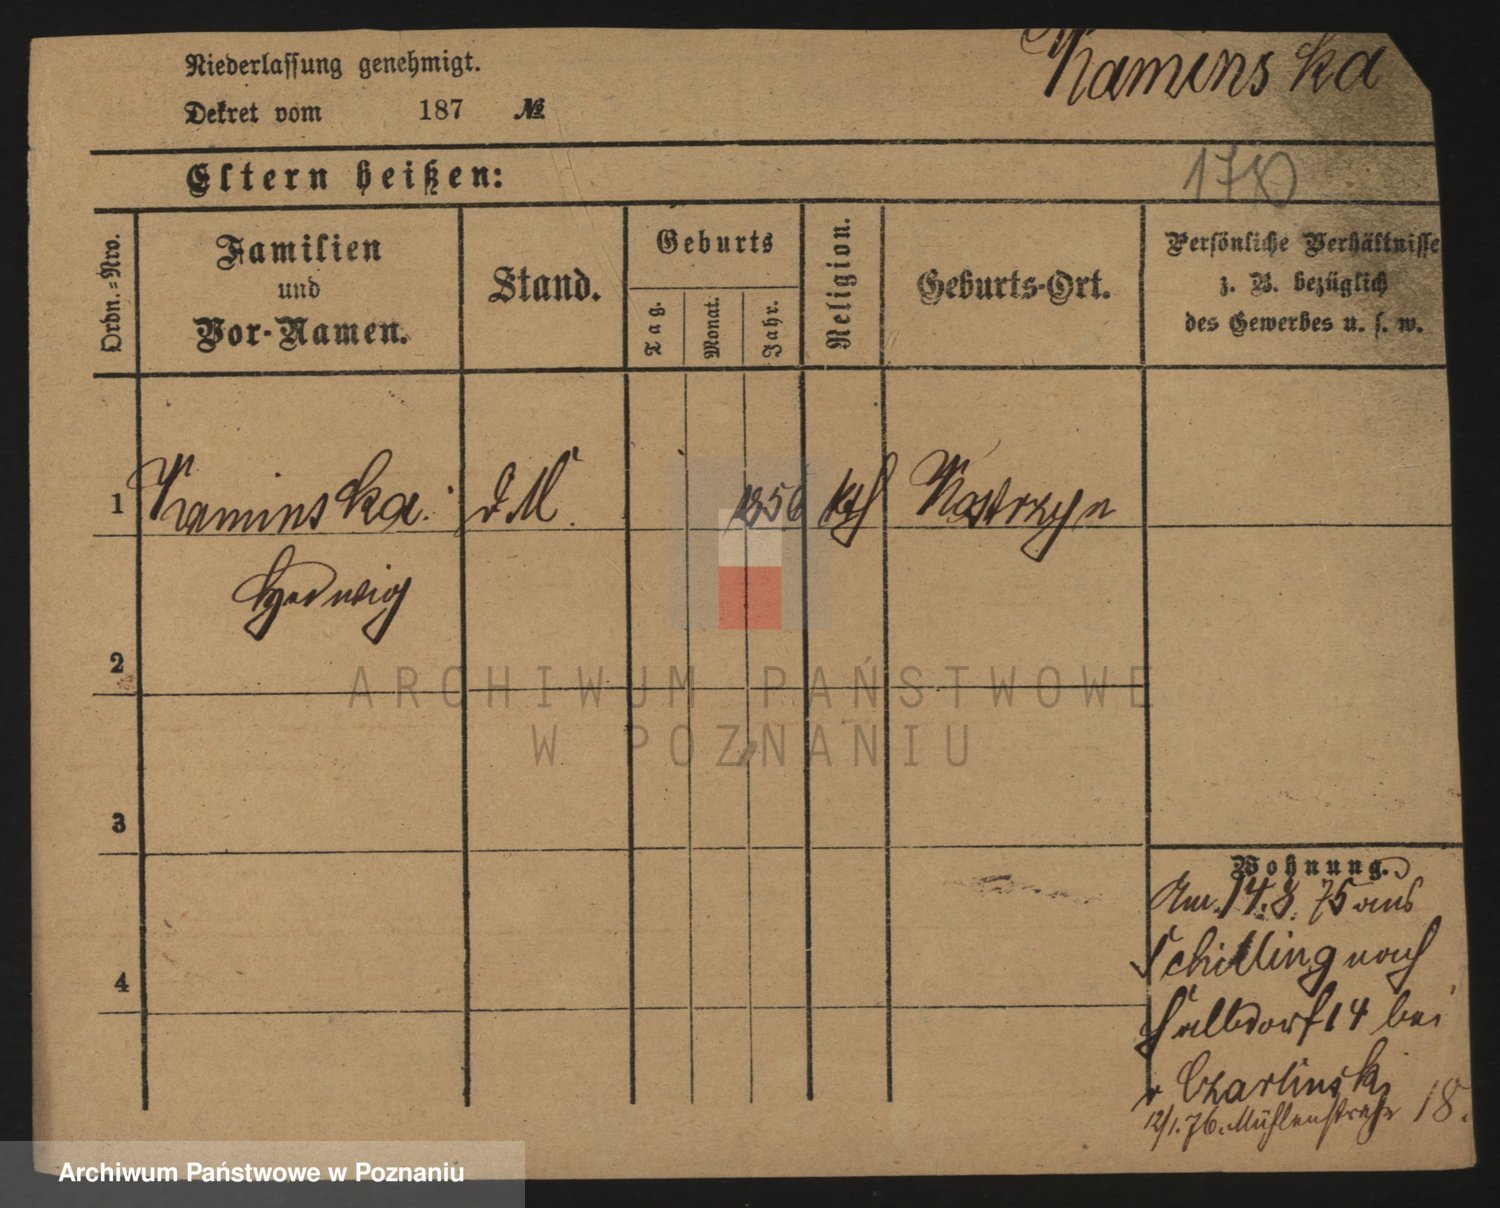 Niederlassung genehmigt.
Kaminska
Dekret vom 187 №
Eltern heißen:
178
Ordn.=Nro.
Familien
und
Vor-Namen.
Stand.
Geburts
Tag.
Monat.
Jahr.
Religion.
Geburts-Ort.
Persönliche Verhältnisse
z. B. bezüglich
des Gewerbes u. s. w.
1 Kaminska. d. M. 1856 kth Kostrzyn
Hedwig
2
ARCHIWUM PAŃSTWOWE
W POZNANIU
3
Wohnung.
Am. 14.8.75 aus
4 Schilling nach
Halbdorf 14 bei
v Czarlinski
12/1.76. Mühlenstraße 18.
Archiwum Państwowe w Poznaniu